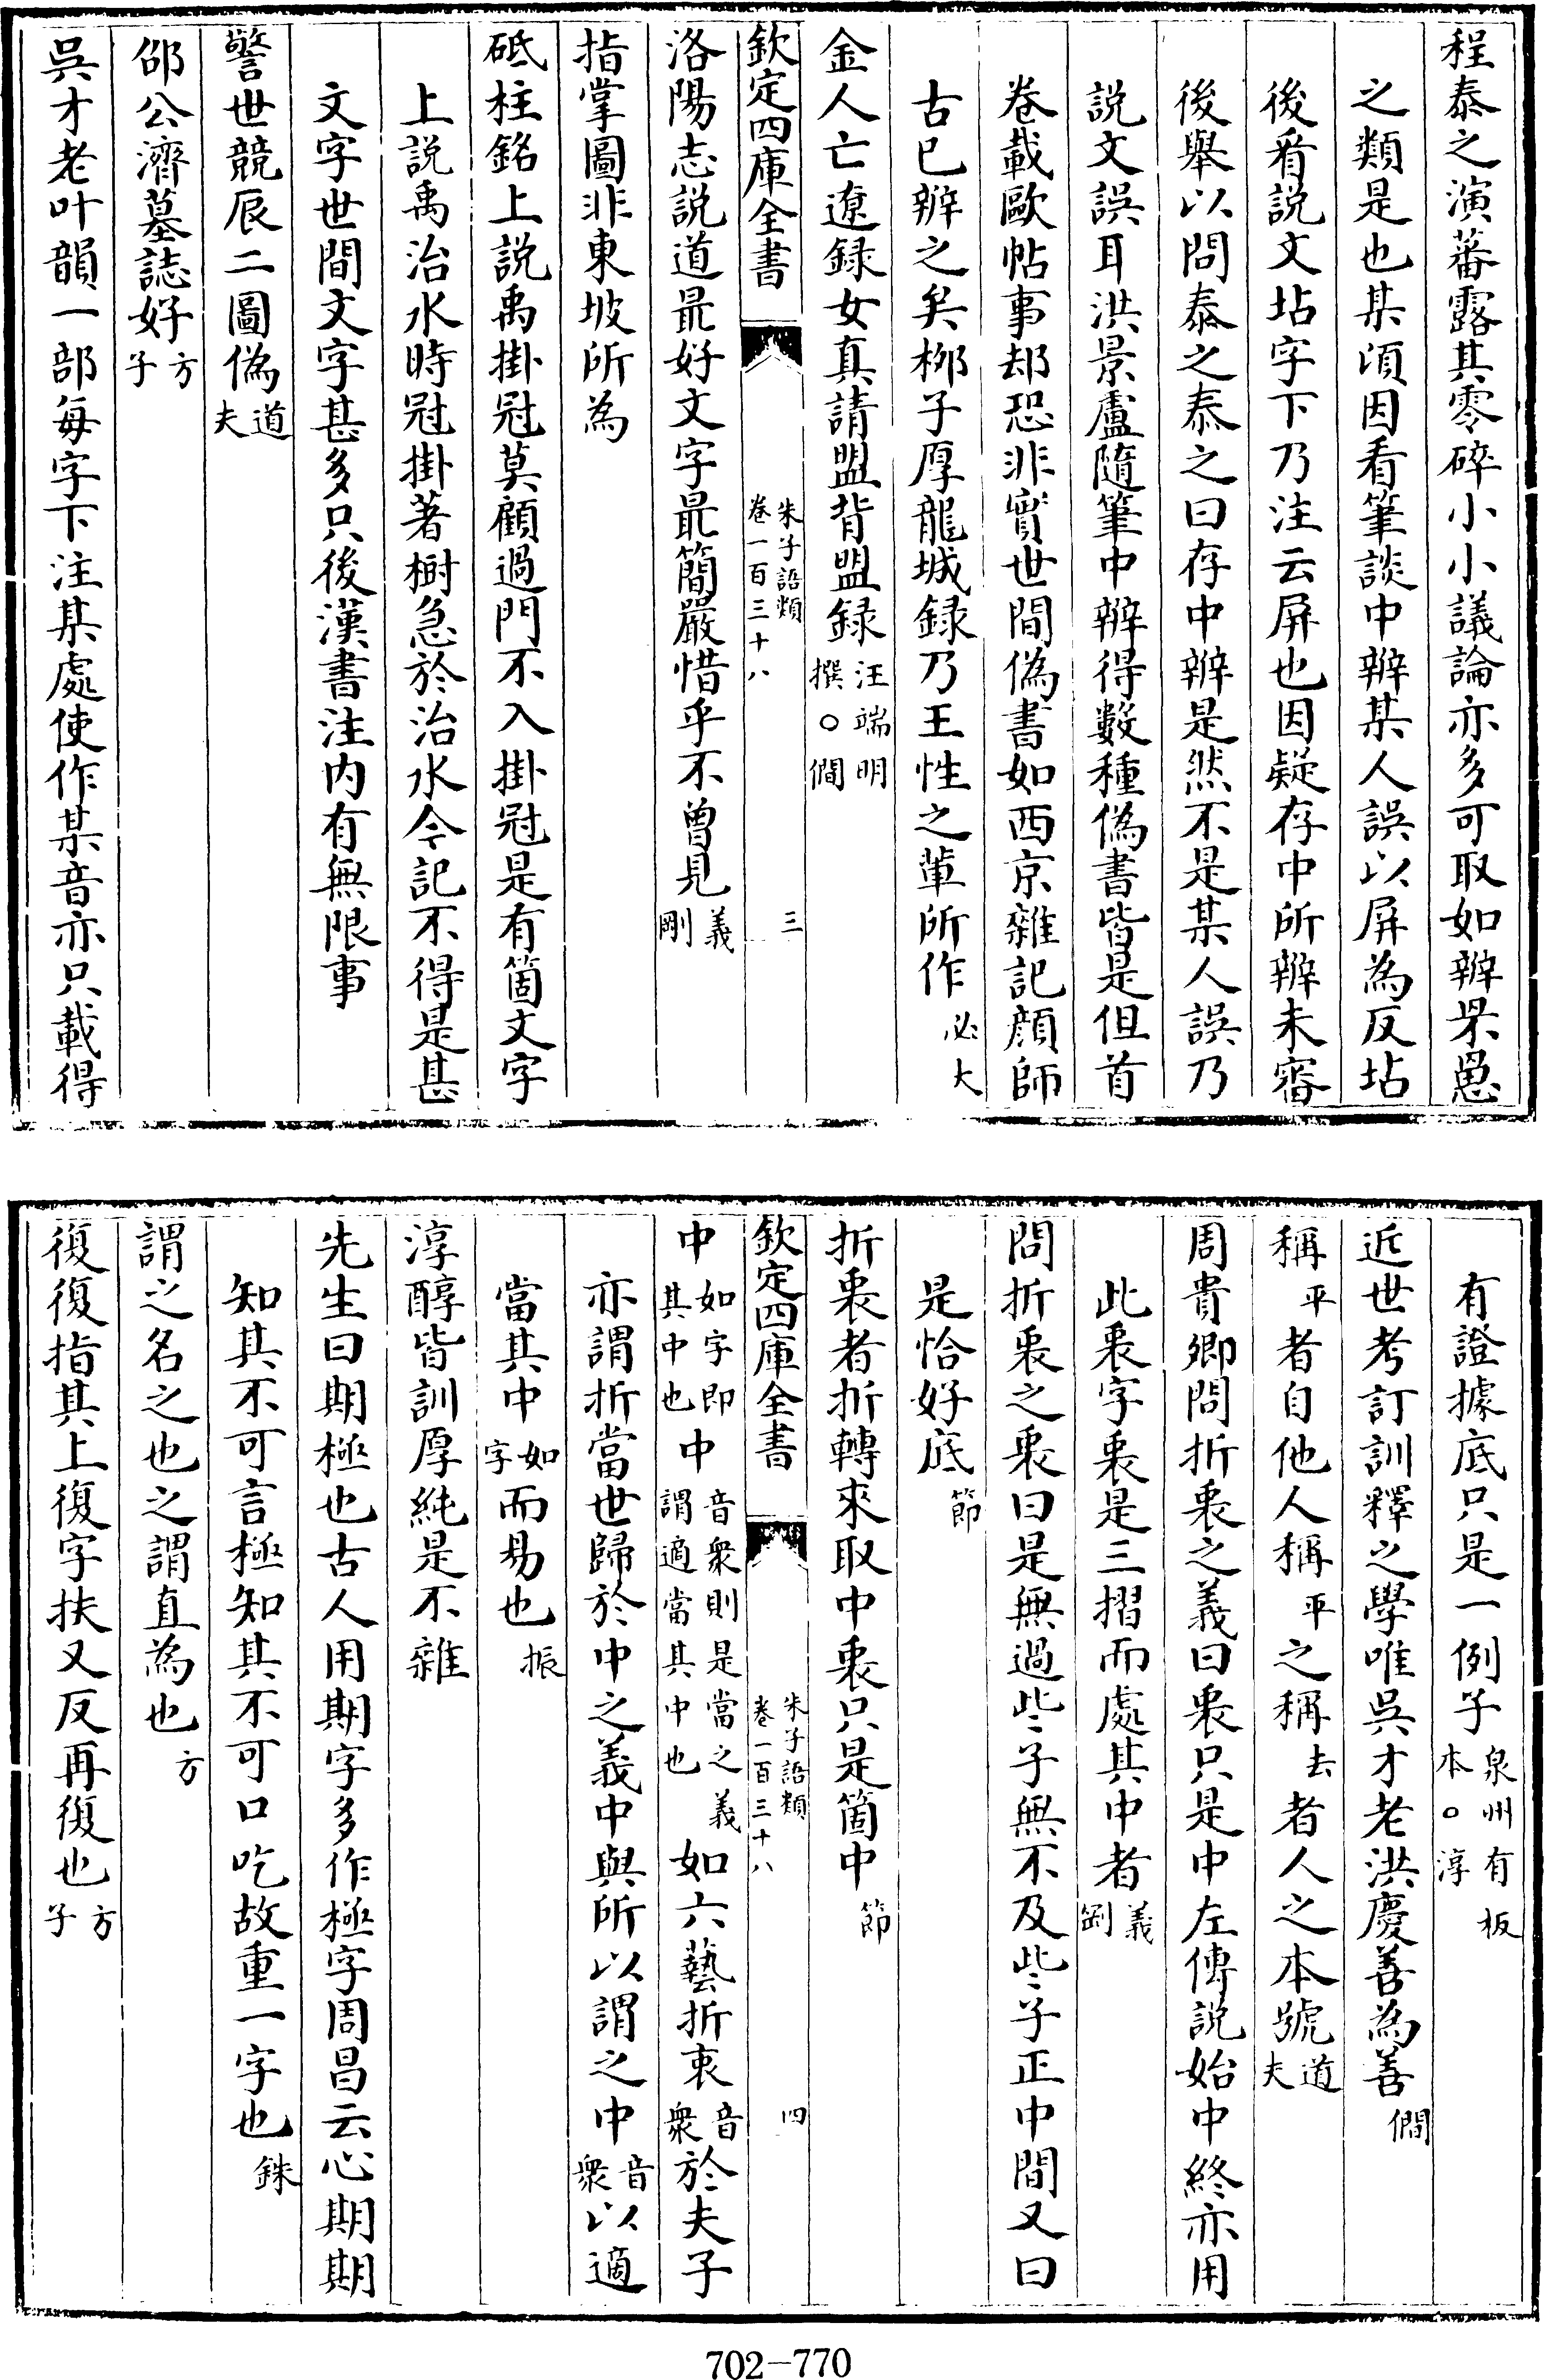 程泰之演蕃露其零碎小小議論亦多可取如辨罘罳
之類是也某頃因看筆談中辨某人誤以屏為反坫
後看説文坫字下乃注云屏也因疑存中所辨未審
後舉以問泰之泰之曰存中辨是然不是某人誤乃
説文誤耳洪景盧隨筆中辨得數種偽書皆是但首
卷載歐帖事却恐非實世間偽書如西京雜記顔師
古已辨之矣栁子厚龍城録乃王性之軰所作必大
金人亡遼録女真請盟背盟録汪端明撰○僩
欽定四庫全書 朱子語類卷一百三十八 三
洛陽志説道最好文字最簡嚴惜乎不曾見義剛
指掌圖非東坡所為
砥柱銘上説禹掛冠莫顧過門不入掛冠是有箇文字
上説禹治水時冠掛著樹急於治水今記不得是甚
文字世間文字甚多只後漢書注内有無限事
警世競辰二圖偽道夫
邵公濟墓誌好方子
吳才老叶韻一部每字下注某處使作某音亦只載得
有證據底只是一例子泉州有板本○淳
近世考訂訓釋之學唯吳才老洪慶善為善僩
稱平者自他人稱平之稱去者人之本號道夫
周貴卿問折衷之義曰衷只是中左傳説始中終亦用
此衷字衷是三摺而處其中者義剛
問折衷之衷曰是無過些子無不及些子正中間又曰
是恰好底節
折衷者折轉來取中衷只是箇中節
欽定四庫全書 朱子語類卷一百三十八 四
中如字即其中也中音衆則是當之義謂適當其中也如六藝折衷音衆於夫子
亦謂折當世歸於中之義中與所以謂之中音衆以適
當其中如字而易也振
淳醇皆訓厚純是不雜
先生曰期極也古人用期字多作極字周昌云心期期
知其不可言極知其不可口吃故重一字也銖
謂之名之也之謂直為也方
復復指其上復字扶又反再復也方子
702—770